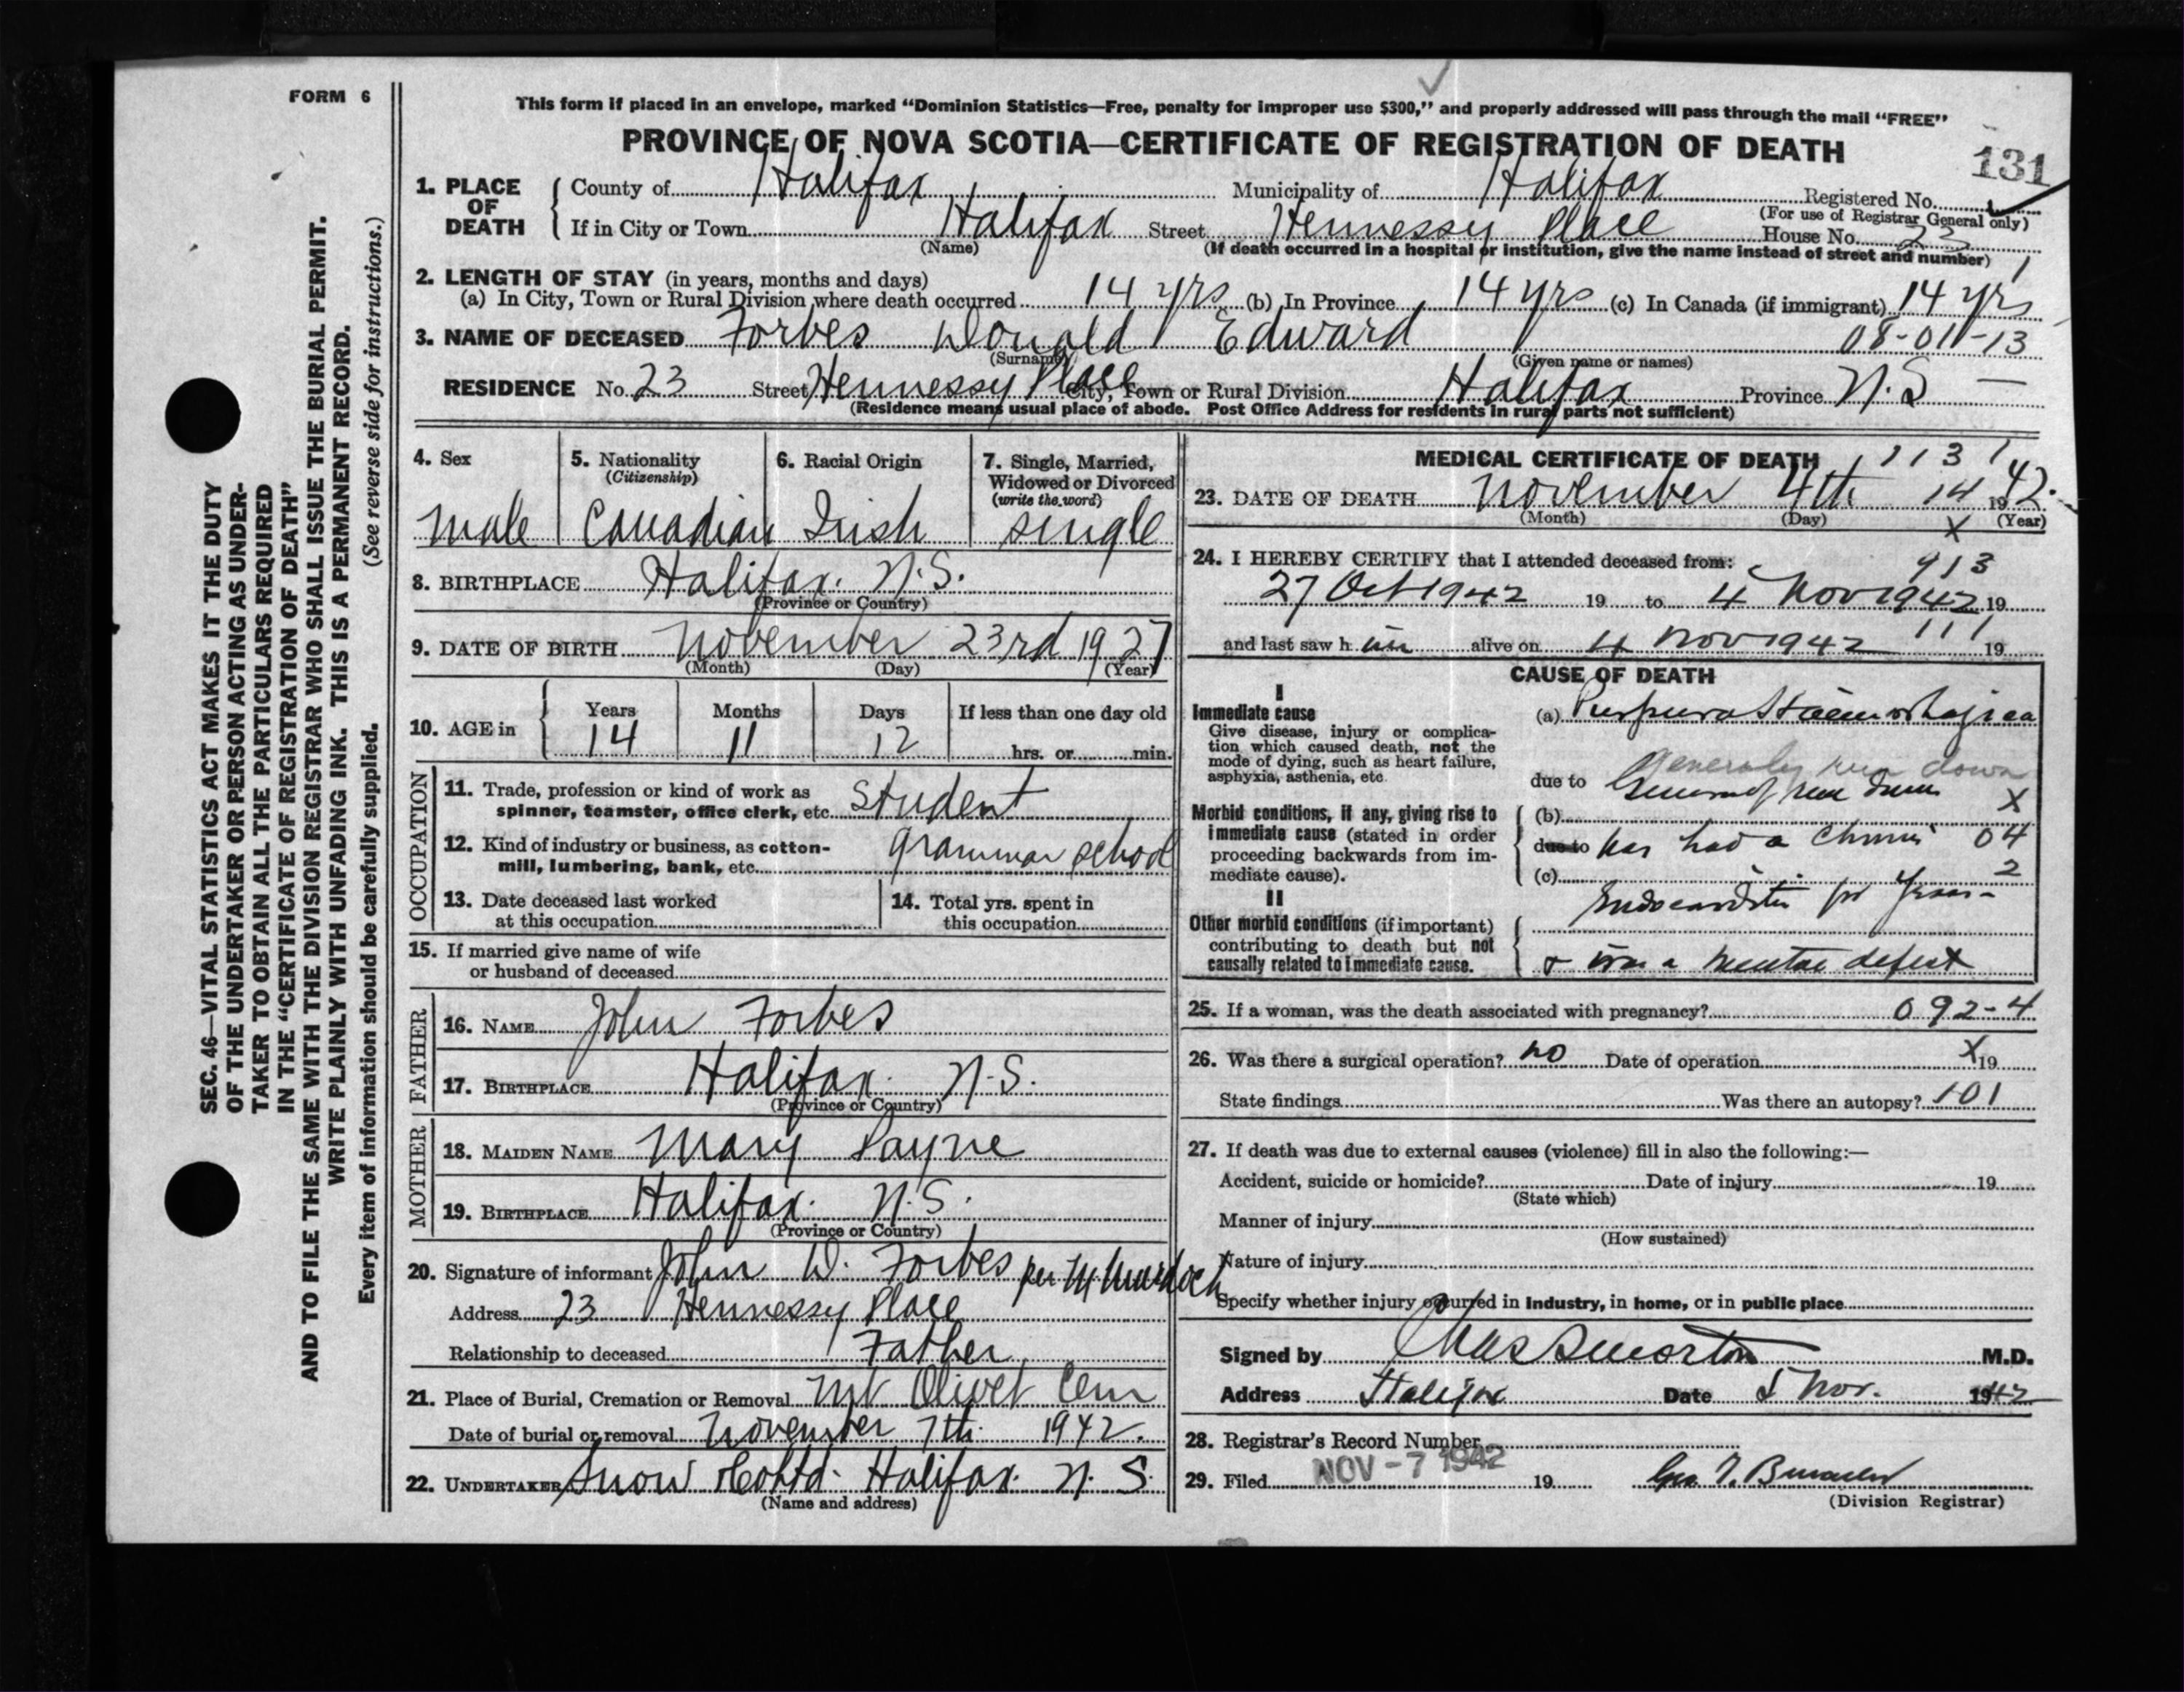 FORM 6
This form if placed in an envelope, marked “Dominion Statistics—Free, penalty for improper use $300,” and properly addressed will pass through the mail “FREE”
PROVINCE OF NOVA SCOTIA—CERTIFICATE OF REGISTRATION OF DEATH
131
1. PLACE OF DEATH
County of Halifax Municipality of Halifax Registered No.
(For use of Registrar General only)
If in City or Town Halifax Street Hennessy Place House No. 23
(Name) (If death occurred in a hospital or institution, give the name instead of street and number)
2. LENGTH OF STAY (in years, months and days)
(a) In City, Town or Rural Division where death occurred 14 yrs (b) In Province 14 yrs (c) In Canada (if immigrant) 14 yrs
3. NAME OF DECEASED Forbes Donald Edward 08-011-13
(Surname) (Given name or names)
RESIDENCE No. 23 Street Hennessy Place City, Town or Rural Division Halifax Province N.S —
(Residence means usual place of abode. Post Office Address for residents in rural parts not sufficient)
4. Sex
male
5. Nationality
(Citizenship)
Canadian
6. Racial Origin
Irish
7. Single, Married,
Widowed or Divorced
(write the word)
single
8. BIRTHPLACE Halifax. N.S.
(Province or Country)
9. DATE OF BIRTH November 23rd 1927
(Month) (Day) (Year)
10. AGE in
Years Months Days If less than one day old
14 11 12 hrs. or min.
OCCUPATION
11. Trade, profession or kind of work as
spinner, teamster, office clerk, etc. student
12. Kind of industry or business, as cotton-
mill, lumbering, bank, etc. grammar school
13. Date deceased last worked
at this occupation
14. Total yrs. spent in
this occupation
15. If married give name of wife
or husband of deceased
FATHER
16. NAME John Forbes
17. BIRTHPLACE Halifax. N.S.
(Province or Country)
MOTHER
18. MAIDEN NAME Mary Payne
19. BIRTHPLACE Halifax. N.S.
(Province or Country)
20. Signature of informant John W. Forbes per M Murdoch
Address 23 Hennessy Place
Relationship to deceased Father
21. Place of Burial, Cremation or Removal Mt Olivet Cem
Date of burial or removal November 7th. 1942.
22. UNDERTAKER Snow & Co Ltd. Halifax. N.S.
(Name and address)
MEDICAL CERTIFICATE OF DEATH
1 1 3 1
23. DATE OF DEATH November 4th 14 1942.
(Month) (Day) (Year)
X
24. I HEREBY CERTIFY that I attended deceased from:
913
27 Oct 1942 19 to 4 Nov 1942 19
111
and last saw h im alive on 4 Nov 1942 19
CAUSE OF DEATH
I
Immediate cause
Give disease, injury or complica-
tion which caused death, not the
mode of dying, such as heart failure,
asphyxia, asthenia, etc.
(a) Purpura Haemorhagica
generaly run down
due to General run down
X
Morbid conditions, if any, giving rise to
immediate cause (stated in order
proceeding backwards from im-
mediate cause).
(b)
due to has had a chronic 04
(c) 2
Endocarditis for years —
II
Other morbid conditions (if important)
contributing to death but not
causally related to immediate cause.
& was a mental defect
25. If a woman, was the death associated with pregnancy? 092-4
26. Was there a surgical operation? no Date of operation X 19
State findings Was there an autopsy? 101
27. If death was due to external causes (violence) fill in also the following:—
Accident, suicide or homicide? Date of injury 19
(State which)
Manner of injury
(How sustained)
Nature of injury
Specify whether injury occurred in industry, in home, or in public place
Signed by Chas S Morton M.D.
Address Halifax Date 5 Nov. 1942
28. Registrar's Record Number
29. Filed NOV - 7 1942 19
(Division Registrar)
SEC. 46—VITAL STATISTICS ACT MAKES IT THE DUTY
OF THE UNDERTAKER OR PERSON ACTING AS UNDER-
TAKER TO OBTAIN ALL THE PARTICULARS REQUIRED
IN THE “CERTIFICATE OF REGISTRATION OF DEATH”
AND TO FILE THE SAME WITH THE DIVISION REGISTRAR WHO SHALL ISSUE THE BURIAL PERMIT.
WRITE PLAINLY WITH UNFADING INK. THIS IS A PERMANENT RECORD.
Every item of information should be carefully supplied. (See reverse side for instructions.)